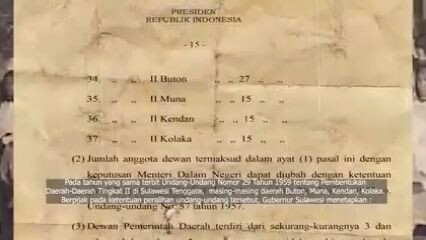 PRESIDEN
REPUBLIK INDONESIA
- 15 -
34. „ „ II Buton „ „ 27 „ „
35. „ „ II Muna „ „ 15 „ „
36. „ „ II Kendari „ „ 15 „ „
37. „ „ II Kolaka „ „ 15 „ „
(2) Jumlah anggota dewan termaksud dalam ayat (1) pasal ini dengan
keputusan Menteri Dalam Negeri dapat diubah dengan ketentuan
Pada tahun yang sama terbit Undang-Undang Nomor 29 Tahun 1959 tentang Pembentukan
Daerah-Daerah Tingkat II di Sulawesi Tenggara, masing-masing daerah Buton, Muna, Kendari, Kolaka.
Berpijak pada ketentuan peralihan undang-undang tersebut, Gubernur Sulawesi menetapkan :
Undang-undang No. 57 tahun 1957.
(3) Dewan Pemerintah Daerah terdiri dari sekurang-kurangnya 3 dan